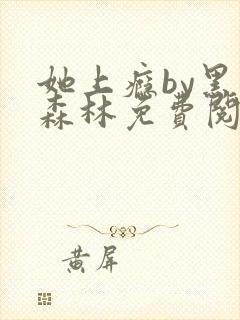 她上瘾by黑
森林免费阅
黄屏